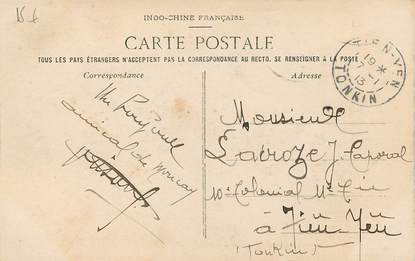 15 f
INDO-CHINE FRANÇAISE
CARTE POSTALE
TOUS LES PAYS ÉTRANGERS N'ACCEPTENT PAS LA CORRESPONDANCE AU RECTO. SE RENSEIGNER A LA POSTE
Correspondance
Adresse
TIEN-YEN
19
7-1
13
TONKIN
amical de Moncay
Monsieur
Lacroze J. Caporal
10e Colonial 11e Cie
à Tien-Yen
(Tonkin)